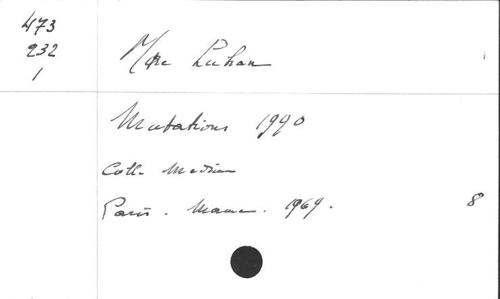 473
232
1
Mac Luhan
Mutations 1990
Coll. Medium
Paris. Mame. 1969. 8